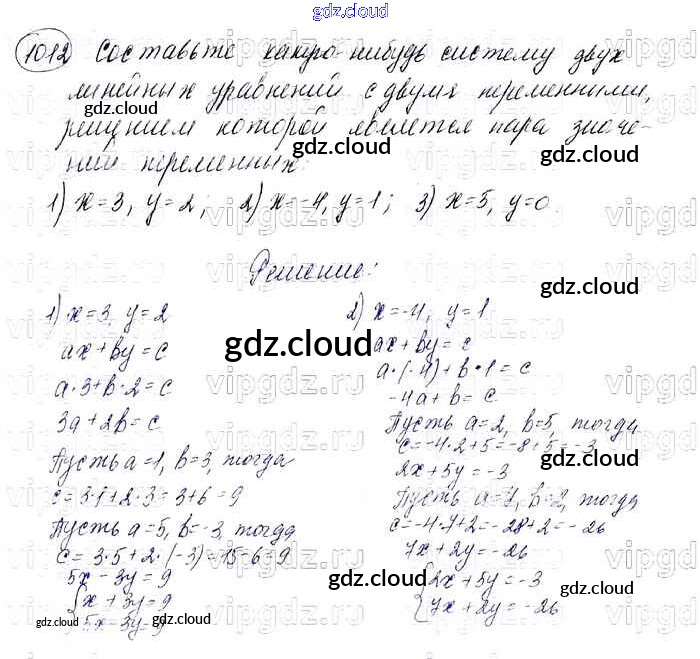 gdz.cloud
1012 Составьте какую-нибудь систему двух
линейных уравнений с двумя переменными,
решением которой является пара значе-
ний переменных:
1) x=3, y=2; 2) x=-4, y=1; 3) x=5, y=0.
gdz.cloud
gdz.cloud
gdz.cloud
Решение:
gdz.cloud
1) x=3, y=2
ax+by=c
a·3+b·2=c
3a+2b=c
Пусть a=1, b=3, тогда
c=3·1+2·3=3+6=9
Пусть a=5, b=-3, тогда
c=3·5+2·(-3)=15-6=9
5x-3y=9
{x+3y=9
5x-3y=9
gdz.cloud
2) x=-4, y=1
ax+by=c
a·(-4)+b·1=c
-4a+b=c
Пусть a=2, b=5, тогда
c=-4·2+5=-8+5=-3
2x+5y=-3
Пусть a=7, b=2, тогда
c=-4·7+2=-28+2=-26
7x+2y=-26
{2x+5y=-3
7x+2y=-26
gdz.cloud
gdz.cloud
gdz.cloud
gdz.cloud
gdz.cloud
gdz.cloud